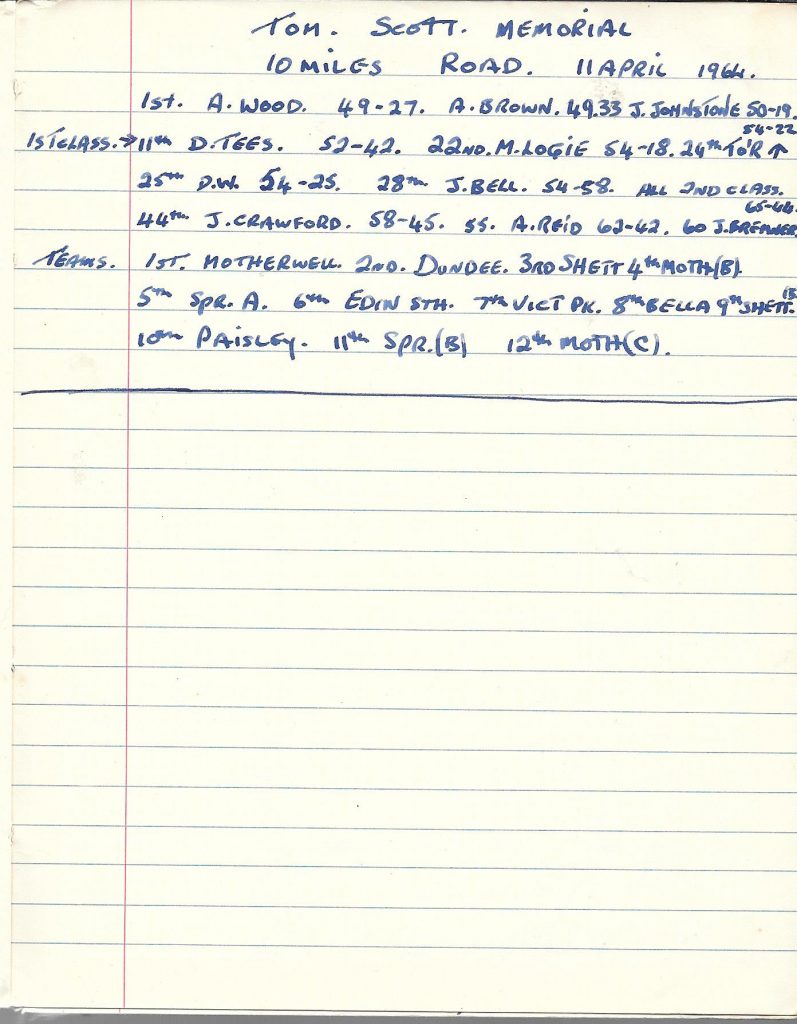 TOM. SCOTT. MEMORIAL
10 MILES ROAD. 11 APRIL 1964.
1st. A. WOOD. 49-27. A. BROWN. 49.33 J. JOHNSTONE 50-19.
54-22
1ST CLASS. → 11th D. TEES. 52-42. 22ND. M. LOGIE 54-18. 24th TO'R ↑
25th D.W. 54-25. 28th J. BELL. 54-58. ALL 2ND CLASS.
65-44
44th J. CRAWFORD. 58-45. 55. A. REID 62-42. 60 J. BREMNER.
TEAMS. 1ST. MOTHERWELL. 2ND. DUNDEE. 3RD SHETT 4th MOTH(B).
5th SPR. A. 6th EDIN STH. 7th VICT PK. 8th BELLA 9th SHETT. (B)
10th PAISLEY. 11th SPR.(B) 12th MOTH(C).